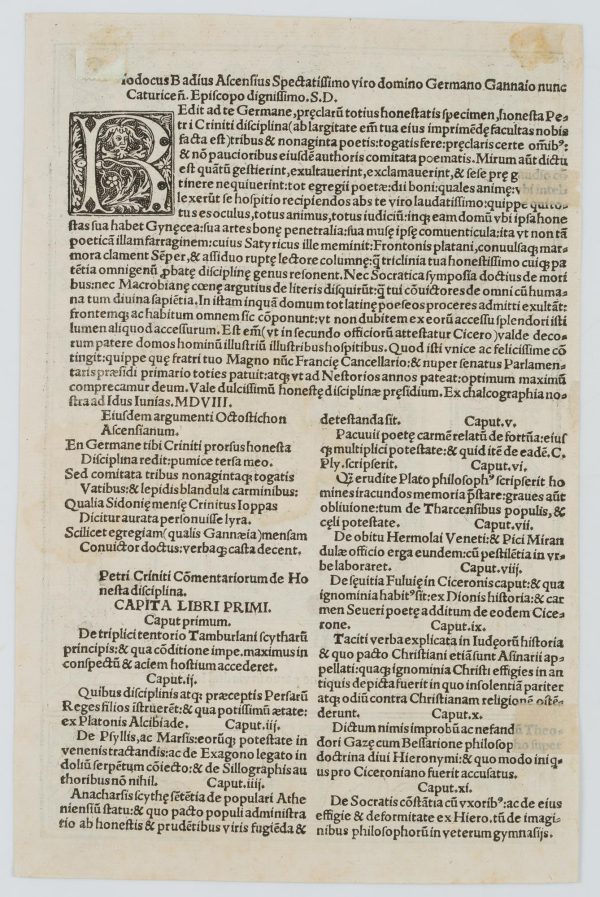 Iodocus Badius Ascensius Spectatissimo viro domino Germano Gannaio nunc
Caturiceñ. Episcopo dignissimo. S.D.
REdit ad te Germane, pręclarũ totius honestatis specimen, honesta Pe-
tri Criniti disciplina (ab largitate em̃ tua eius imprimẽdę facultas nobis
facta est) tribus & nonaginta poetis: togatis fere: pręclaris certe om̃ibꝰ:
& nõ paucioribus eiusdẽ authoris comitata poematis. Mirum aũt dictu
est quãtũ gestierint, exultauerint, exclamauerint, & sese prę g
tinere nequiuerint: tot egregii poetæ: dii boni: quales animę: v
lexerũt se hospitio recipiendos abs te viro laudatissimo: quippe qui to-
tus es oculus, totus animus, totus iudiciũ: inqꝫ eam domũ vbi ipsa hone
stas sua habet Gynęcea: sua artes bonę penetralia: sua musę ipsę comuenticula: ita vt non tã
poeticã illam farraginem: cuius Satyricus ille meminit: Frontonis platani, conuulsaqꝫ mar-
mora clament Sẽper, & assiduo ruptę lectore columnę: ꝗ̃ triclinia tua honestissimo cuiqꝫ pa-
tẽtia omnigenũ ꝓbatę disciplinę genus resonent. Nec Socratica symposia doctius de mori
bus: nec Macrobianę cœnę argutius de literis disquirũt: ꝗ̃ tui cõuictores de omni cũ huma
na tum diuina sapiẽtia. In istam inquã domum tot latinę poeseos proceres admitti exultãt:
frontemqꝫ ac habitum omnem sic cõponunt: vt non dubitem ex eorũ accessu splendori isti
lumen aliquod accessurum. Est em̃ (vt in secundo officiorũ attestatur Cicero) valde deco-
rum patere domos hominũ illustriũ illustribus hospitibus. Quod isti vnice ac felicissime cõ
tingit: quippe quę fratri tuo Magno nũc Francię Cancellario: & nuper senatus Parlamen-
taris præsidi primario toties patuit: atqꝫ vt ad Nestorios annos pateat: optimum maximũ
comprecamur deum. Vale dulcissimũ honestę disciplinæ pręsidium. Ex chalcographia no-
stra ad Idus Iunias. MDVIII.
Eiusdem argumenti Octostichon
Ascensianum.
En Germane tibi Criniti prorsus honesta
Disciplina redit: pumice tersa meo.
Sed comitata tribus nonagintaqꝫ togatis
Vatibus: & lepidis blandula carminibus:
Qualia Sidonię menśę Crinitus Ioppas
Dicitur aurata personuisse lyra.
Scilicet egregiam (qualis Gannæia) mensam
Conuictor doctus: verbaqꝫ casta decent.
Petri Criniti Cõmentariorum de Ho
nesta disciplina.
CAPITA LIBRI PRIMI.
Caput primum.
De triplici tentorio Tamburlani scytharũ
principis: & qua cõditione impe. maximus in
conspectũ & aciem hostium accederet.
Caput.ij.
Quibus disciplinis atqꝫ præceptis Persarũ
Reges filios istruerẽt: & qua potissimũ ætate:
ex Platonis Alcibiade. Caput.iij.
De Psyllis, ac Marsis: eorũqꝫ potestate in
venenis tractandis: ac de Exagono legato in
doliũ serpẽtum cõiecto: & de Sillographis au
thoribus nõ nihil. Caput.iiij.
Anacharsis scythę sẽtẽtia de populari Athe
niensiũ statu: & quo pacto populi administra
tio ab honestis & prudẽtibus viris fugiẽda &
detestanda sit. Caput.v.
Pacuuii poetę carmẽ relatũ de fortũa: eiusꝗ
multiplici potestate: & quid itẽ de eadẽ. C.
Ply. scripserit. Caput.vi.
Qđ erudite Plato philosophꝰ scripserit ho
mines iracundos memoria p̃stare: graues aũt
obliuione: tum de Tharcensibus populis, &
cęli potestate. Caput.vii.
De obitu Hermolai Veneti: & Pici Miran
dulæ officio erga eundem: cũ pestilẽtia in vr-
be laboraret. Caput.viii.
De sęuitia Fuluię in Ciceronis caput: & qua
ignominia habitꝰ sit: ex Dionis historia: & car
men Seueri poetę additum de eodem Cice-
rone. Caput.ix.
Taciti verba explicata in Iudęorũ historia
& quo pacto Christiani etiã sunt Asinarii ap-
pellati: quaqꝫ ignominia Christi effigies in an
tiquis depicta fuerit in quo insolentiã pariter
atqꝫ odiũ contra Christianam religionẽ ostẽ-
derunt. Caput.x.
Dictum nimis improbũ ac nefand ũ Theo-
dori Gazę cum Bessarione philosop ho super
doctrina diui Hieronymi: & quo modo iniq
us pro Ciceroniano fuerit accusatus.
Caput.xi.
De Socratis cõstãtia cũ vxoribꝰ: ac de eius
effigie & deformitate ex Hiero. tũ de imagi-
nibus philosophorũ in veterum gymnasijs.